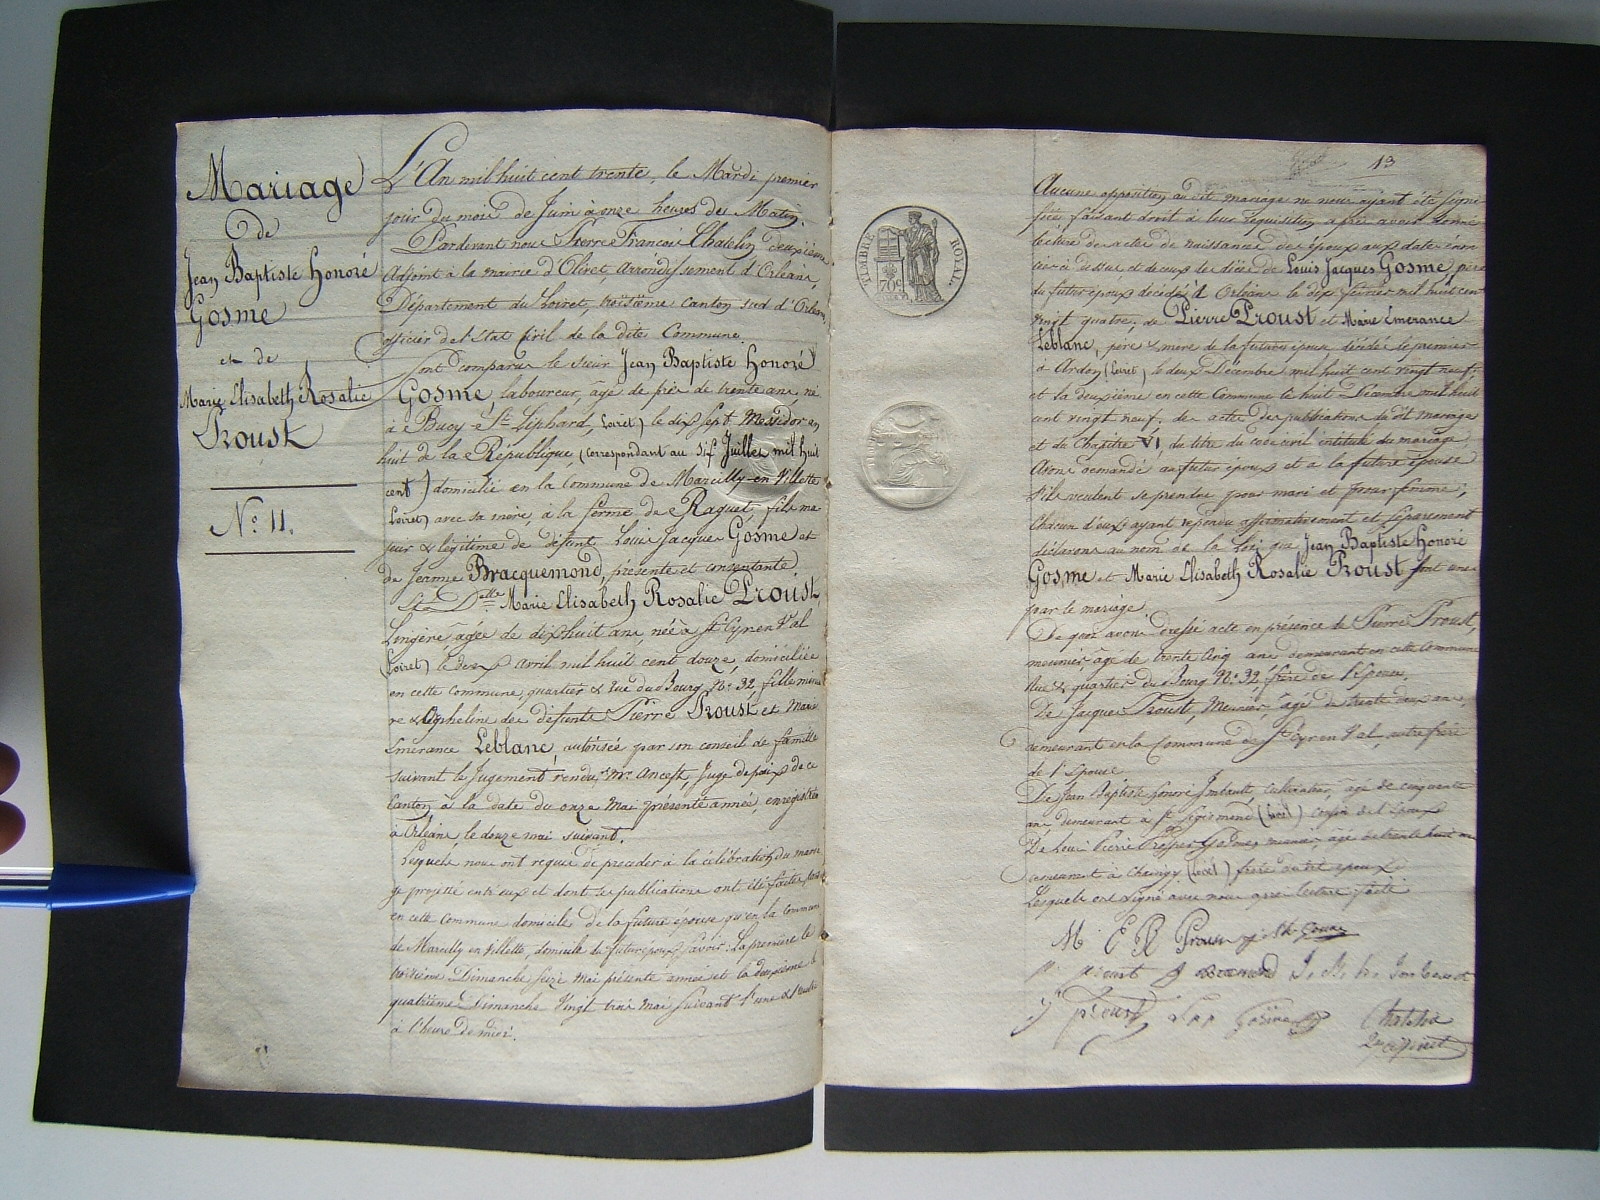 Mariage
de
Jean Baptiste Honoré
Gosme
et de
Marie Elisabeth Rosalie
Proust
N.º 11.
L'An mil huit cent trente, le Mardi premier
jour du mois de Juin à onze heures du Matin.
Pardevant nous Pierre François Chatelin deuxième
Adjoint à la mairie d'Olivet, arrondissement d'Orléans,
Département du Loiret, troisième canton sud d'Orléans,
officier de l'Etat Civil de la dite Commune.
Sont comparus le sieur Jean Baptiste Honoré
Gosme laboureur, âgé de près de trente ans, né
à Bucy St Liphard, (Loiret) le dix sept Messidor an
huit de la République, (correspondant au six Juillet mil huit
cent) domicilié en la Commune de Marcilly en Villette
(Loiret) avec sa mère, à la ferme de Raguet, fils ma
jeur & légitime de défunt Louis Jacques Gosme et
de Jeanne Bracquemond, présente et consentante
Et Dlle Marie Elisabeth Rosalie Proust,
Lingère, âgée de dix huit ans née à St Cyr en Val
(Loiret) le deux avril mil huit cent douze, domiciliée
en cette commune, quartier & rue du Bourg N.º 32, fille mineu
re & Orpheline de défunts Pierre Proust et Marie
Emerance Leblanc, autorisée par son conseil de famille
suivant le Jugement rendu Mr Ancest, Juge de paix de ce
Canton à la date du onze mai présente année, enregistré
à Orléans le douze mai suivant.
Lesquels nous ont requis de proceder à la célébration du maria
ge projetté entr'eux et dont les publications ont été faites, tant
en cette commune domicile de la future épouse qu'en la commune
de Marcilly en Villette, domicile du futur époux savoir: La première le
troisième Dimanche seize mai présente année et la deuxième le
quatrième Dimanche Vingt trois mai suivant l'une & l'autre
à l'heure de midi.
TIMBRE ROYAL.
70c
13
Aucune opposition au dit mariage ne nous ayant été signi
fiée, faisant droit à leur requisition après avoir donné
lecture des actes de naissance des époux aux dates énon
cées ci dessus et de ceux de décès de Louis Jacques Gosme, père
du futur époux décédé à Orléans le dix février mil huit cent
vingt quatre, de Pierre Proust et Marie Emerance
Leblanc, père & mère de la future épouse décédés le premier
à Ardon (Loiret) le deux Décembre mil huit cent vingt neuf,
et la deuxième en cette Commune le huit Décembre mil huit
cent vingt neuf, des actes des publications du dit mariage
et du Chapitre VI, du titre du code civil intitulé du mariage,
Avons demandé au futur époux et à la future épouse
s'ils veulent se prendre pour mari et pour femme;
Chacun d'eux ayant répondu affirmativement et séparément
déclarons au nom de la Loi que Jean Baptiste Honoré
Gosme et Marie Elisabeth Rosalie Proust sont unis
par le mariage.
De quoi avons dressé acte en présence de Pierre Proust,
meunier, âgé de trente cinq ans demeurant en cette Commune
Rue & quartier du Bourg N.º 32, frère de l'Epouse.
De Jacques Proust, Meunier, âgé de trente deux ans,
demeurant en la Commune de St Cyr en Val, autre frère
de l'Epouse
De Jean Baptiste Honoré Imbault, Cultivateur, âgé de cinquante
ans demeurant à St Sigismond (Loiret) cousin de l'Epoux
De Louis Pierre Prosper Gosme, meunier, âgé de trente huit ans
demeurant à Chaingy (Loiret) frère du dit époux
Lesquels ont signé avec nous après lecture faite
M E R Proust
J Bracmond
Proust
L P P Gosme
Chatelin